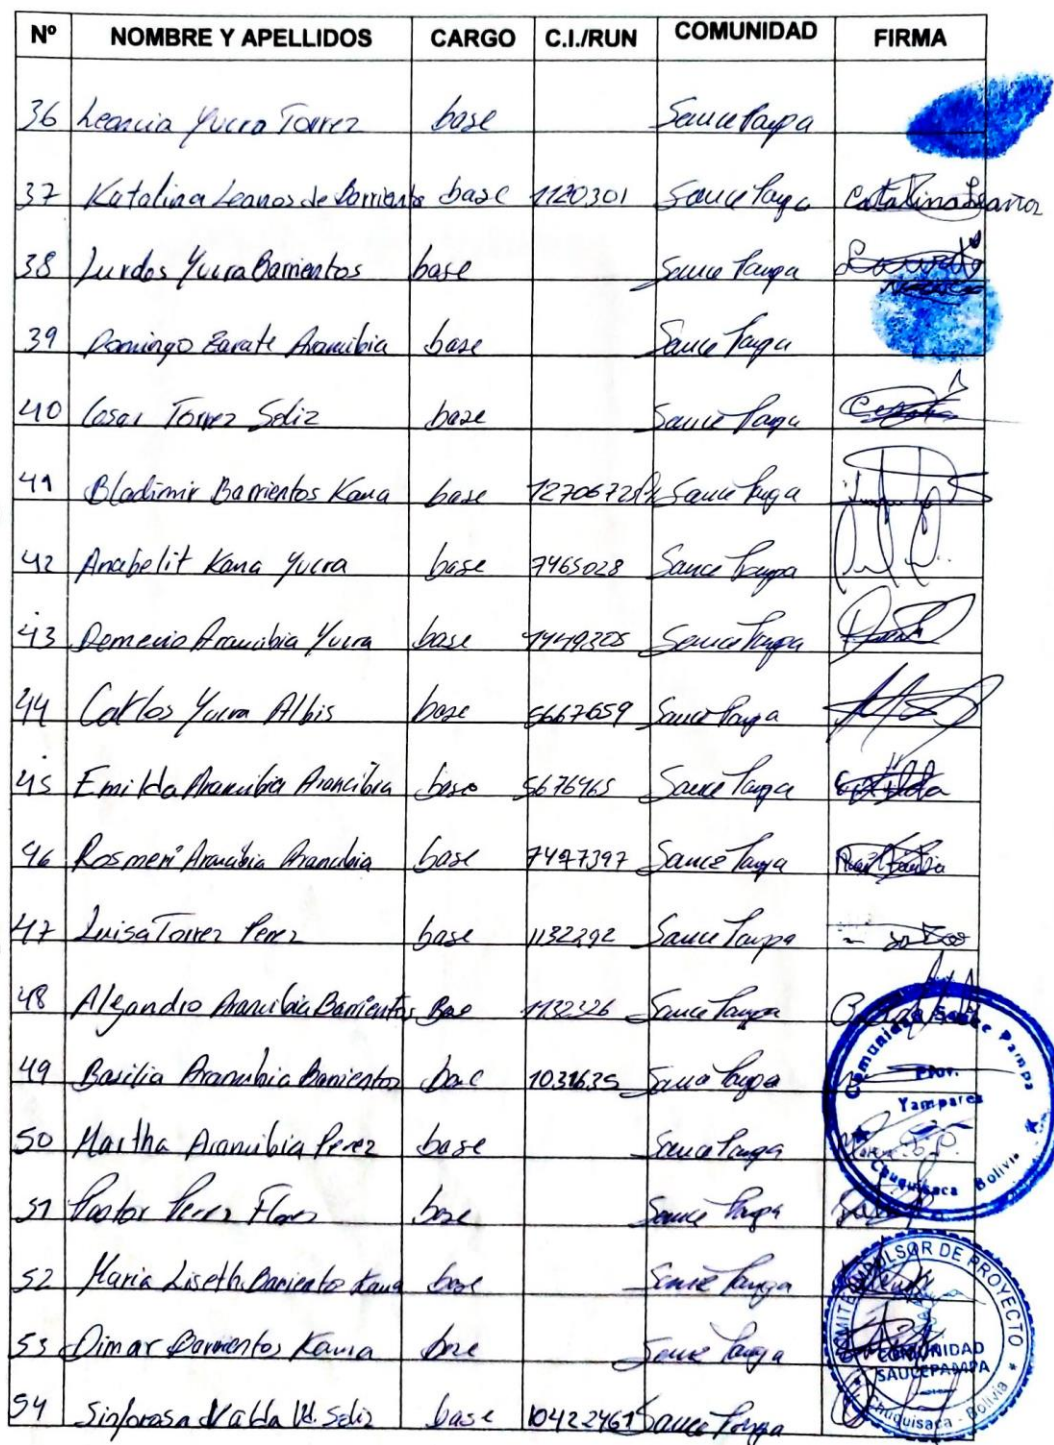 Nº NOMBRE Y APELLIDOS CARGO C.I./RUN COMUNIDAD FIRMA
36 Leoncia Yucra Torrez base Sauce Pampa
37 Katalina Leanos de Barrientos base 1120301 Sauce Pampa Catalina Leaños
38 Lurdes Yucra Barrientos base Sauce Pampa
39 Domingo Zarate Arancibia base Sauce Pampa
40 Cesar Torrez Soliz base Sauce Pampa
41 Bladimir Barrientos Kana base Sauce Pampa
42 Anabelit Kana Yucra base 7465028 Sauce Pampa
43 Demecio Arancibia Yucra base Sauce Pampa
44 Carlos Yucra Albis base 5667659 Sauce Pampa
45 Emilda Arancibia Arancibia base 5676465 Sauce Pampa
46 Rosmeri Arancibia Arancibia base 7497397 Sauce Pampa
47 Luisa Torrez Perez base 1132292 Sauce Pampa
48 Alejandro Arancibia Barrientos Base 1132326 Sauce Pampa
49 Basilia Arancibia Barrientos base 1031635 Sauce Pampa
50 Martha Arancibia Perez base Sauce Pampa
51 Pastor Perez Flores base Sauce Pampa
52 Maria Liseth Barriento Kana base Sauce Pampa
53 Dimar Barrientos Kana base Sauce Pampa
54 Sinforosa Valda Vd. Soliz base 10422461 Sauce Pampa
Comunidad Sauce Pampa
Prov.
Yamparez
Chuquisaca Bolivia
COMITE IMPULSOR DE PROYECTO
COMUNIDAD
SAUCEPAMPA
Chuquisaca - Bolivia